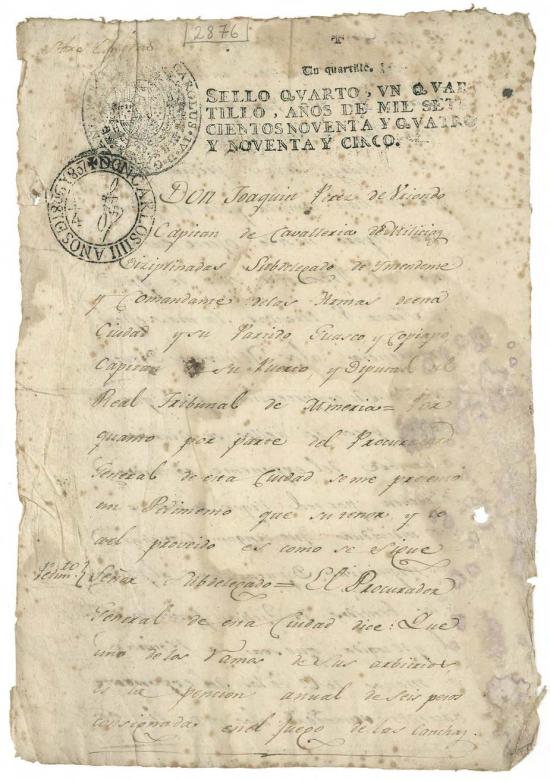 2876
Un quartillo.
SELLO QVARTO, VN QVAR
TILLO, AÑOS DE MIL SETE
CIENTOS NOVENTA Y QVATRO
Y NOVENTA Y CINCO.
CAROLUS IV D G
DON CARLOS IIII AÑOS D 1806 Y 807
Don Joaquin Perez de Uriondo
Capitan de Cavalleria de Milicias
Diziplinadas Subdelegado de Yntendente
y Comandante de las Armas de esta
Ciudad y su Partido Guasco y Copiapo
Capitan su Puerto, y Diputad del
Real Tribunal de Mineria = Por
quanto por parte del Procurador
General de esta Ciudad se me presento
un Pedimento que su tenor y
el proveido es como se sigue
Pedim.to Señor Subdelegado = El Procurador
General de esta Ciudad dice: Que
uno de los Ramos de sus arbitrios
es la pencion anual de seis pesos
en el Juego de las Canchas